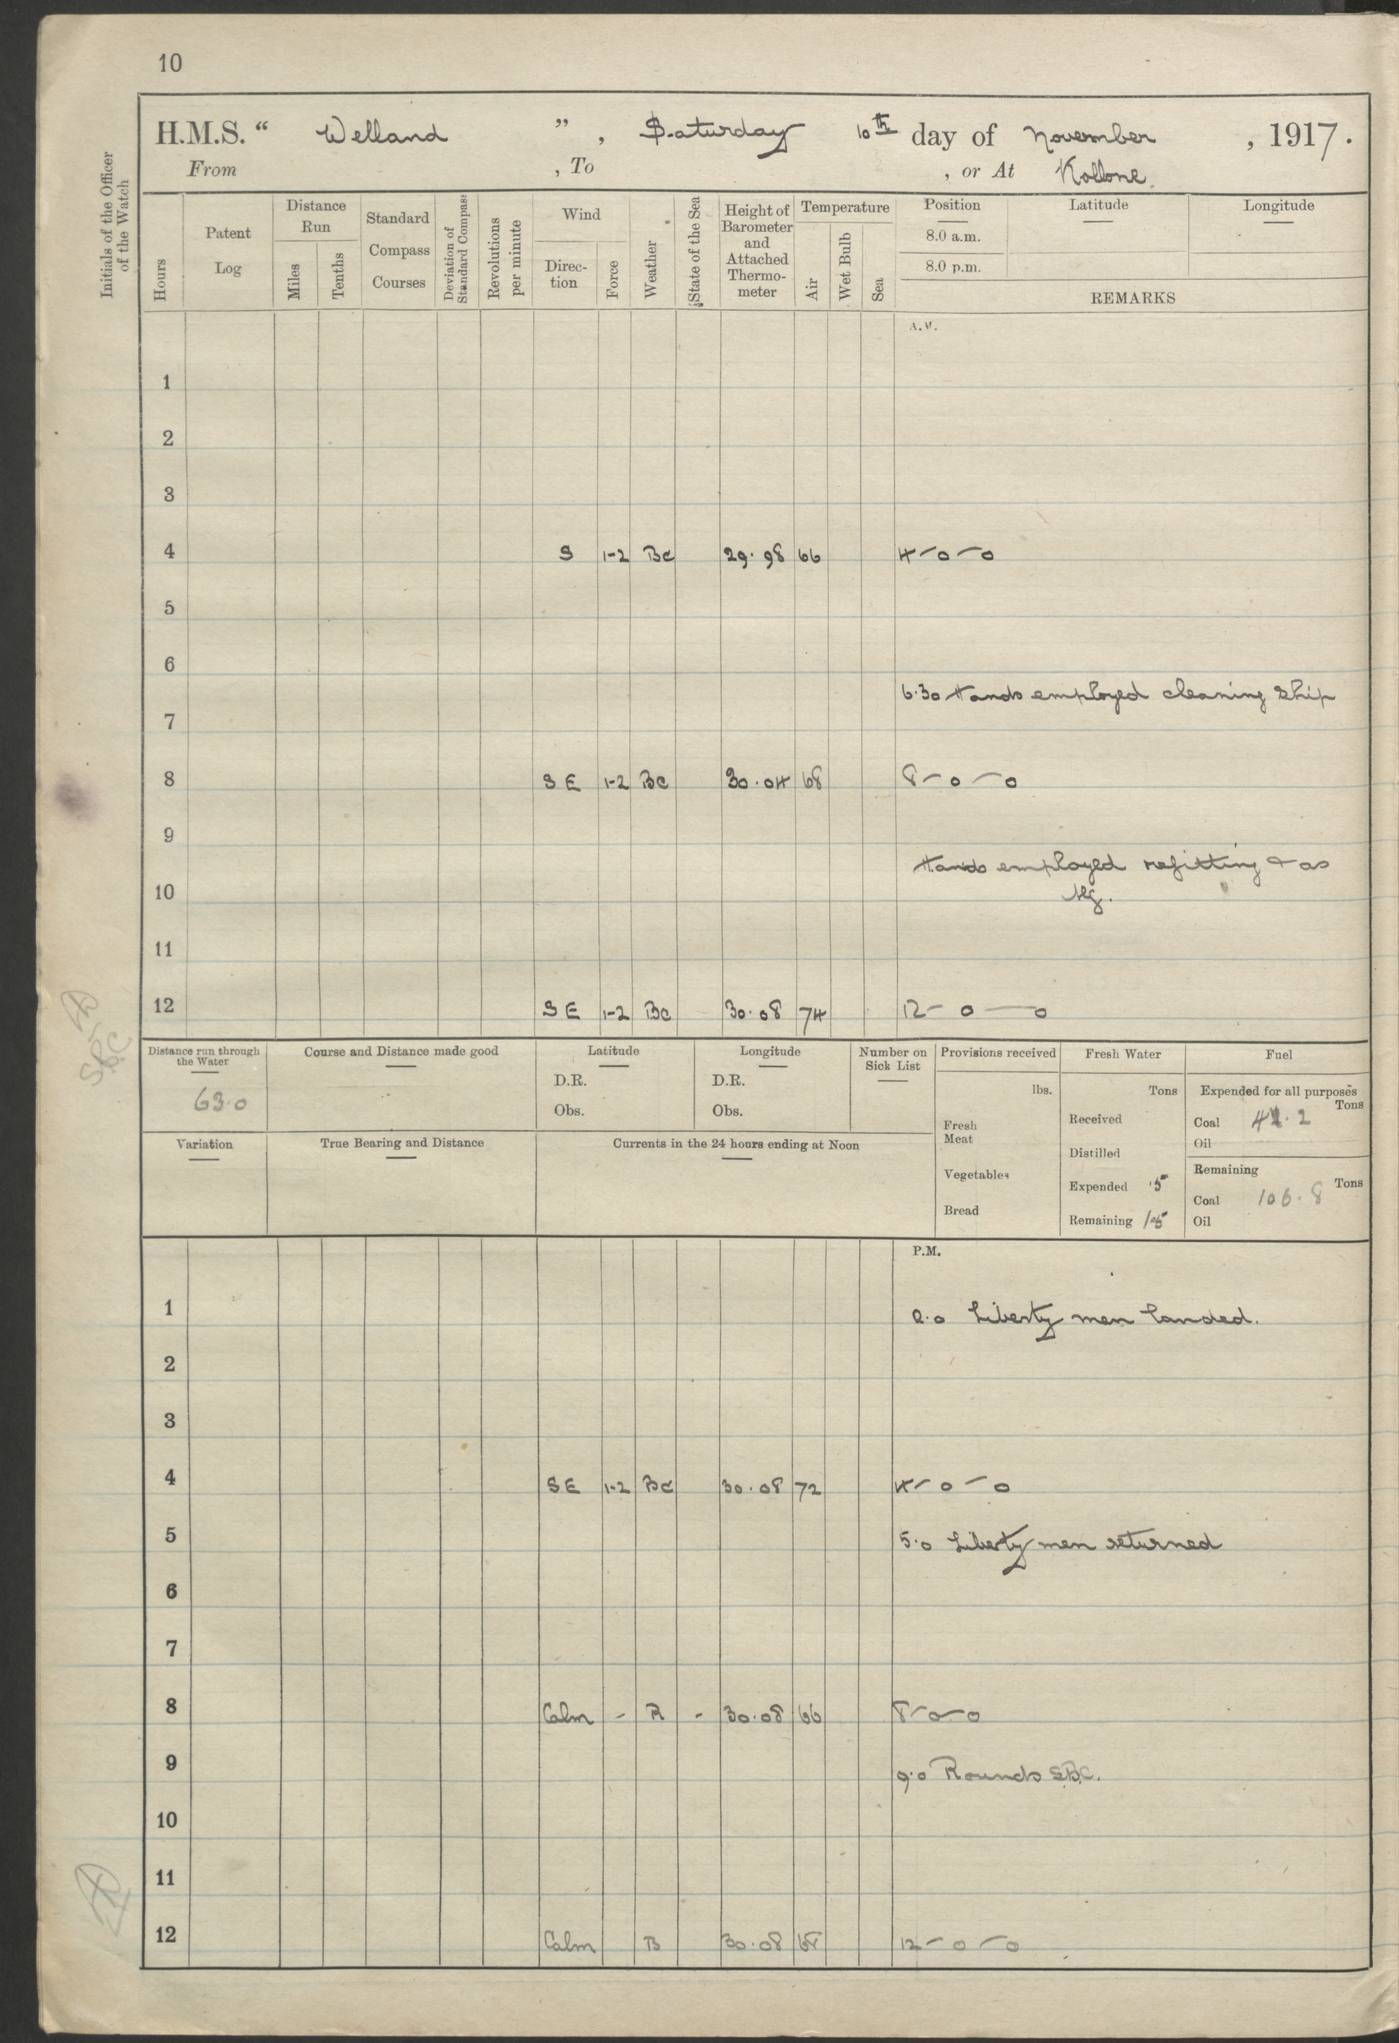 10
H.M.S. “ Welland ”, Saturday 10th day of November, 1917.
From , To , or At Kollone
Initials of the Officer of the Watch
Hours
Patent Log
Distance Run
Miles
Tenths
Standard Compass Courses
Deviation of Standard Compass
Revolutions per minute
Wind
Direc-tion
Force
Weather
State of the Sea
Height of Barometer and Attached Thermo-meter
Temperature
Air
Wet Bulb
Sea
Position Latitude Longitude
8.0 a.m.
8.0 p.m.
REMARKS
A.M.
1
2
3
4 S 1-2 Bc 29.98 66 4-0-0
5
6
6.30 Hands employed cleaning ship
7
8 SE 1-2 Bc 30.04 68 8-0-0
9
Hands employed refitting & as
10
11
12 SE 1-2 Bc 30.08 74 12-0-0
SBC
Distance run through the Water
63.0
Course and Distance made good
Latitude
D.R.
Obs.
Longitude
D.R.
Obs.
Number on Sick List
Provisions received
lbs.
Fresh Meat
Vegetables
Bread
Fresh Water
Tons
Received
Distilled
Expended .5
Remaining 15
Fuel
Expended for all purposes
Tons
Coal 42.2
Oil
Remaining
Tons
Coal 106.8
Oil
Variation
True Bearing and Distance
Currents in the 24 hours ending at Noon
P.M.
1 0.0 Liberty men landed.
2
3
4 SE 1-2 Bc 30.08 72 4-0-0
5 5.0 Liberty men returned
6
7
8 Calm - R - 30.08 66 8-0-0
9 9.0 Rounds SBC.
10
11
12 Calm B 30.08 68 12-0-0